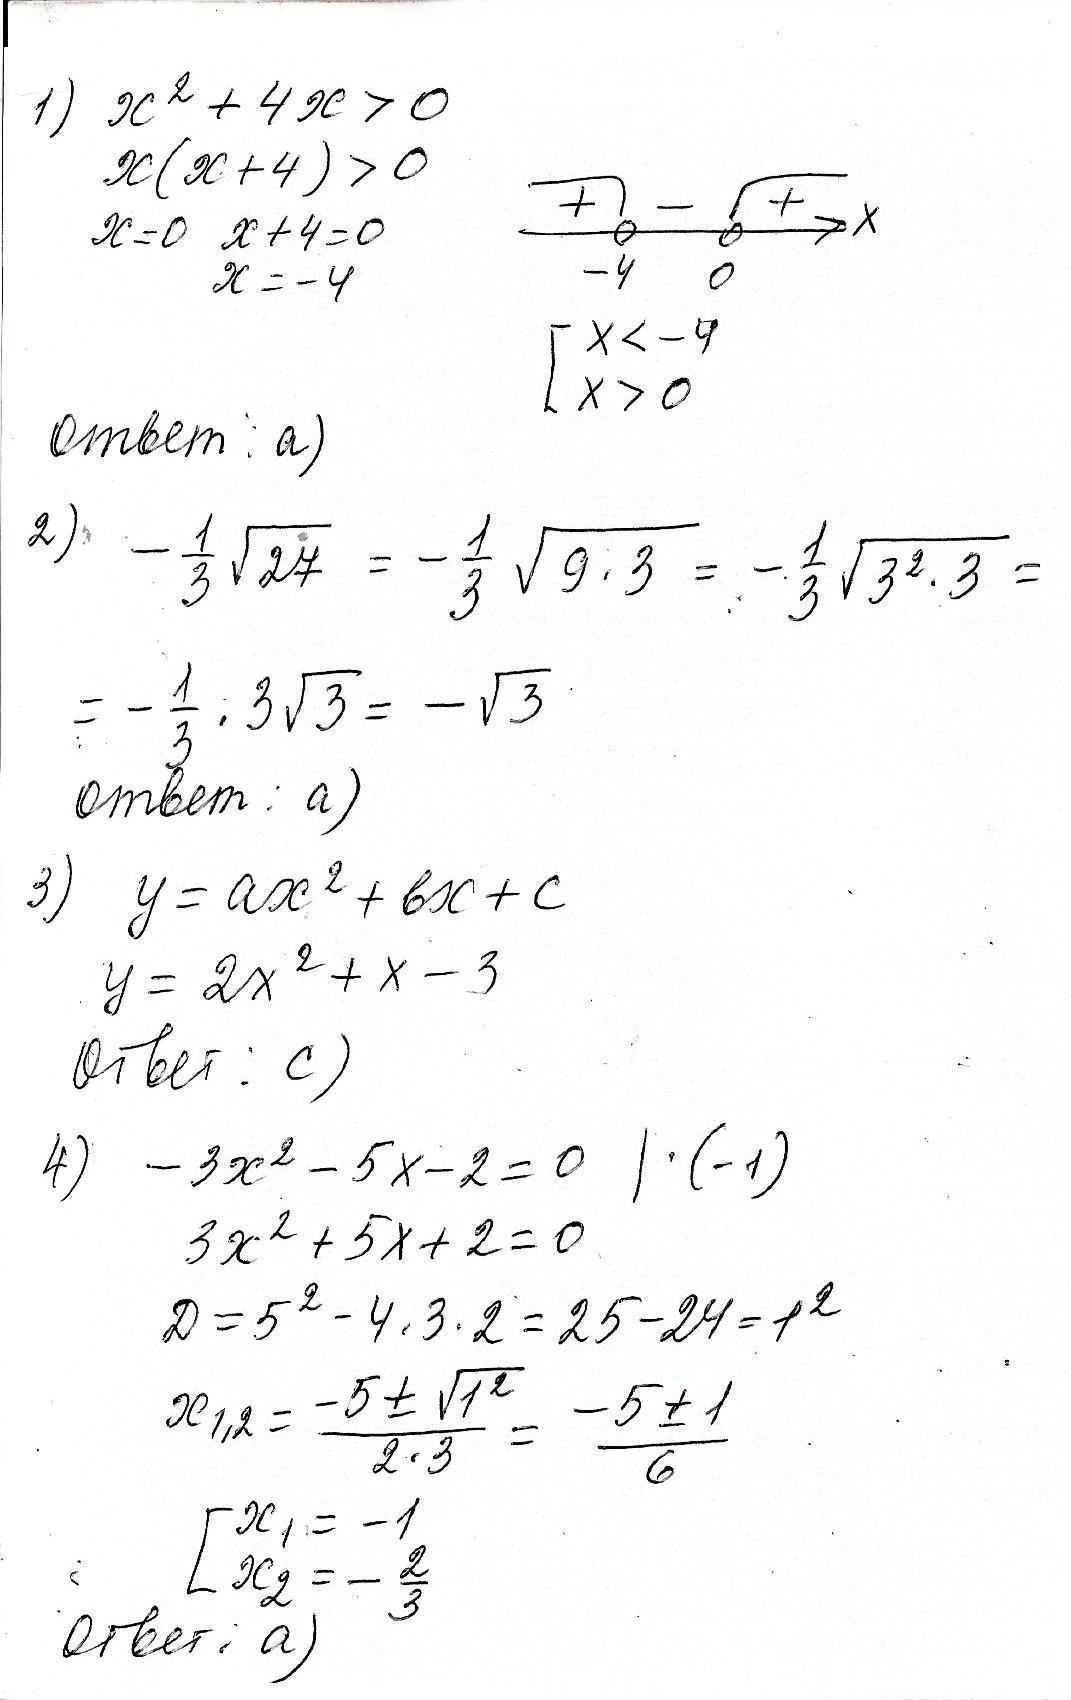 1) x² + 4x > 0
x(x+4) > 0
x=0 x+4=0
x = -4
+ - + x
-4 0
[ x < -4
x > 0
Ответ: а)
2) -1/3 √27 = -1/3 √(9·3) = -1/3 √(3²·3) =
= -1/3 · 3√3 = -√3
Ответ: а)
3) y = ax² + вx + c
y = 2x² + x - 3
Ответ: с)
4) -3x² - 5x - 2 = 0 |·(-1)
3x² + 5x + 2 = 0
D = 5² - 4·3·2 = 25 - 24 = 1²
x1,2 = (-5 ± √1²)/(2·3) = (-5 ± 1)/6
[ x₁ = -1
x₂ = -2/3
Ответ: а)